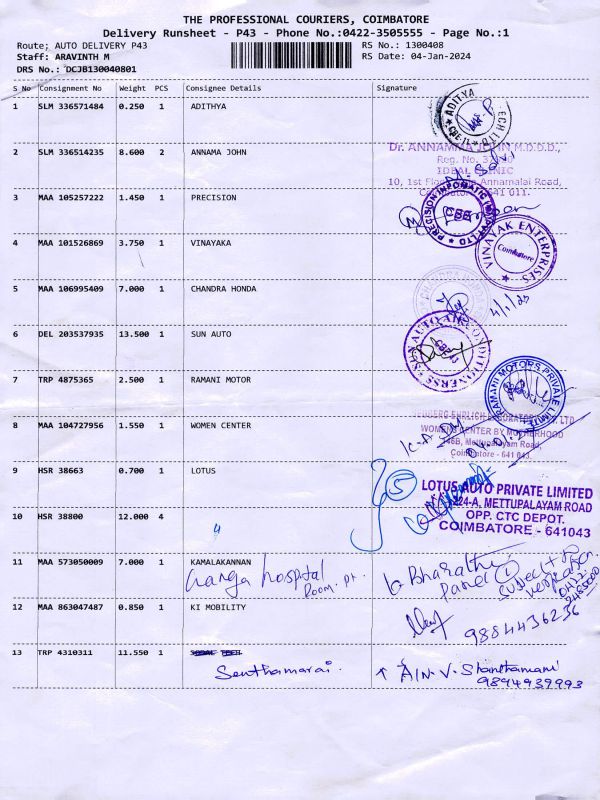 THE PROFESSIONAL COURIERS, COIMBATORE
Delivery Runsheet - P43 - Phone No.:0422-3505555 - Page No.:1
Route; AUTO DELIVERY P43 RS No.: 1300408
Staff: ARAVINTH M RS Date: 04-Jan-2024
DRS No.: DCJB130040801
S No Consignment No Weight PCS Consignee Details Signature
1 SLM 336571484 0.250 1 ADITHYA
ADITYA
2 SLM 336514235 8.600 2 ANNAMA JOHN
Dr. ANNAMMA JOHN M.D.D.D.,
Reg. No.
IDEAL CLINIC
10, 1st Floor, Annamalai Road,
Coimbatore - 641 011.
3 MAA 105257222 1.450 1 PRECISION
PRECISION INFOMATIC
CBE
4 MAA 101526869 3.750 1 VINAYAKA
VINAYAK ENTERPRISES
Coimbatore
5 MAA 106995409 7.000 1 CHANDRA HONDA
6 DEL 203537935 13.500 1 SUN AUTO
SUN AUTO
7 TRP 4875365 2.500 1 RAMANI MOTOR
RAMANI MOTORS PRIVATE LIMITED
8 MAA 104727956 1.550 1 WOMEN CENTER
WOMENS CENTER BY MOTHERHOOD
Mettupalayam Road,
Coimbatore - 641 043.
9 HSR 38663 0.700 1 LOTUS
5
LOTUS AUTO PRIVATE LIMITED
224-A, METTUPALAYAM ROAD
OPP. CTC DEPOT.
COIMBATORE - 641043
10 HSR 38800 12.000 4
4
11 MAA 573050009 7.000 1 KAMALAKANNAN
Ganga hospital
Room. pt.
Bharathi
Panel ①
subject to
verification
0422
2485000
12 MAA 863047487 0.850 1 KI MOBILITY
9884436236
13 TRP 4310311 11.550 1
Senthamarai. A/N. V. Shanthamani
9894939993